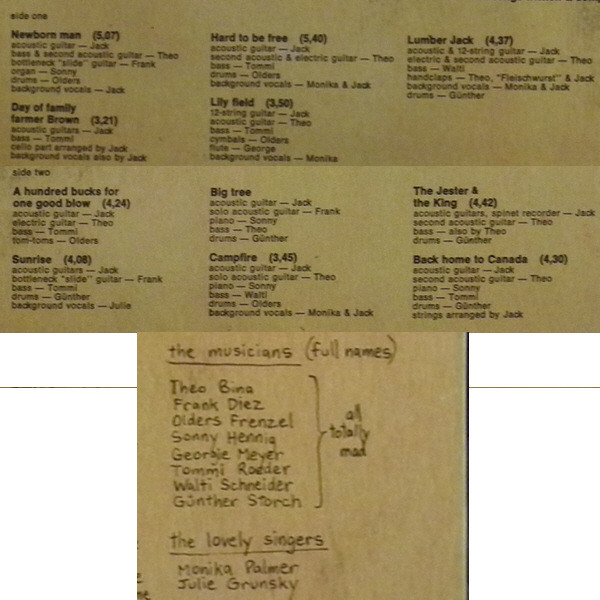 side one
Newborn man (5,07)
acoustic guitar — Jack
bass & second acoustic guitar — Theo
bottleneck "slide" guitar — Frank
organ — Sonny
drums — Olders
background vocals — Jack
Day of family
farmer Brown (3,21)
acoustic guitars — Jack
bass — Tommi
cello part arranged by Jack
background vocals also by Jack
Hard to be free (5,40)
acoustic guitar — Jack
second acoustic & electric guitar — Theo
bass — Tommi
drums — Olders
background vocals — Monika & Jack
Lily field (3,50)
12-string guitar — Jack
acoustic guitar — Theo
bass — Tommi
cymbals — Olders
flute — George
background vocals — Monika
Lumber Jack (4,37)
acoustic & 12-string guitar — Jack
electric & second acoustic guitar — Theo
bass — Walti
handclaps — Theo, "Fleischwurst" & Jack
background vocals — Monika & Jack
drums — Günther
side two
A hundred bucks for
one good blow (4,24)
acoustic guitar — Jack
electric guitar — Theo
bass — Tommi
tom-toms — Olders
Sunrise (4,08)
acoustic guitars — Jack
bottleneck "slide" guitar — Frank
bass — Tommi
drums — Günther
background vocals — Julie
Big tree
acoustic guitar — Jack
solo acoustic guitar — Frank
piano — Sonny
bass — Theo
drums — Günther
Campfire (3,45)
acoustic guitar — Jack
solo acoustic guitar — Theo
piano — Sonny
bass — Walti
drums — Olders
background vocals — Monika & Jack
The Jester &
the King (4,42)
acoustic guitars, spinet recorder — Jack
second acoustic guitar — Theo
bass — also by Theo
drums — Günther
Back home to Canada (4,30)
acoustic guitar — Jack
second acoustic guitar — Theo
piano — Sonny
bass — Tommi
drums — Günther
strings arranged by Jack
the musicians (full names)
Theo Bina
Frank Diez
Olders Frenzel
Sonny Hennig
Georgie Meyer
Tommi Roeder
Walti Schneider
Günther Storch
all
totally
mad
the lovely singers
Monika Palmer
Julie Grunsky